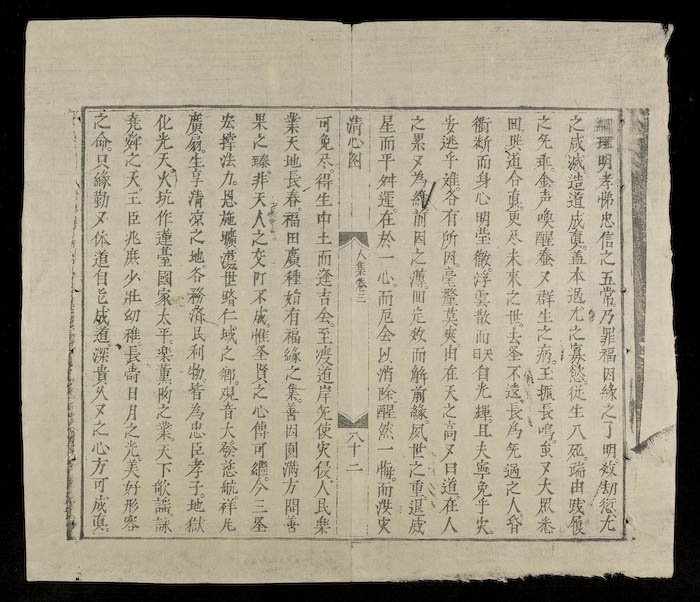 理明孝悌忠信之五常乃罪福因緣之了明效劫愆尤
之咸滅造道成眞蓋本過尤之寡愆從生入死端由踐履
之先乘金声喚醒蚕又群生之病玉振長鳴虽又大衆悉
田與道合眞更尽未來之世去圣不遠長爲无過之人昏
衢断而身心明瑩微浮雲散而天日自光輝且夫寧免乎灾
安逃乎难各有所因毫釐莫爽由在天之高又曰道在人
之累又为緣前因之薄面定效而解前緣夙世之重退减
星而平舛運在於一心而厄会以消除醒然一悔而洪灾
清心图
人集卷三
八十二
可免尽得生中土而逢吉会至度道岸先使灾侵人民樂
業天地長春福田廣種始有福緣之集善因圓滿方開善
果之臻非天人之交何不成惟圣賢之心傳可繼今三圣
宏撑法力恩施世躋仁域之鄉觀音大發慈航祥光
廣扇生享清凉之地各務济民利物皆為忠臣孝子地獄
化光天火坑作蓮臺國家太平樂薰陶之業天下歌謠詠
堯舜之天王臣兆庶少壮幼稚長壽日月之光美好形容
之命只緣勤又体道自成道深貴久又之心方可成眞